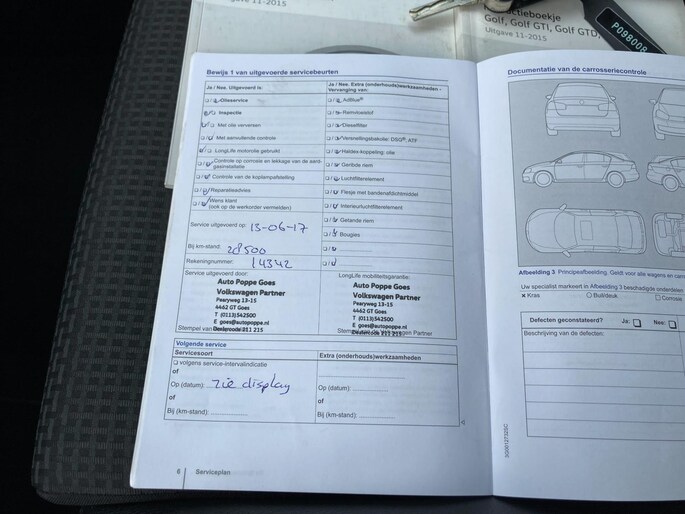 gave 11-2015
ctieboekje
Golf, Golf GTI, Golf GTD,
Uitgave 11-2015
P098008
Bewijs 1 van uitgevoerde servicebeurten
Ja / Nee Uitgevoerd is:
Olieservice
Inspectie
Met olie verversen
Met aanvullende controle
LongLife motorolie gebruikt
Controle op corrosie en lekkage van de aard-
gasinstallatie
Controle van de koplampafstelling
Reparatieadvies
Wens klant
(ook op de werkorder vermelden)
Service uitgevoerd op: 13-06-17
Bij km-stand: 28500
Rekeningnummer: 14342
Ja / Nee Extra (onderhouds)werkzaamheden -
Vervanging van:
AdBlue®
Remvloeistof
Dieselfilter
Versnellingsbakolie: DSG®, ATF
Haldex-koppeling: olie
Geribde riem
Luchtfilterelement
Flesje met bandenafdichtmiddel
Interieurluchtfilterelement
Getande riem
Bougies
Service uitgevoerd door:
Auto Poppe Goes
Volkswagen Partner
Pearyweg 13-15
4462 GT Goes
T (0113)542500
E goes@autopoppe.nl
Dealercode 211 215
Stempel van
LongLife mobiliteitsgarantie:
Auto Poppe Goes
Volkswagen Partner
Pearyweg 13-15
4462 GT Goes
T (0113)542500
E goes@autopoppe.nl
Dealercode 211 215
Stempel Partner
Volgende service
Servicesoort
volgens service-intervalindicatie
of
Op (datum): zie display
of
Bij (km-stand):
Extra (onderhouds)werkzaamheden
Op (datum):
of
Bij (km-stand):
6 Serviceplan
Documentatie van de carrosseriecontrole
Afbeelding 3 Principeafbeelding. Geldt voor alle wagens en carr
Uw specialist markeert in Afbeelding 3 beschadigde onderdelen
x Kras
Buil/deuk
Corrosie
Defecten geconstateerd? Ja: Nee:
Beschrijving van de defecten: